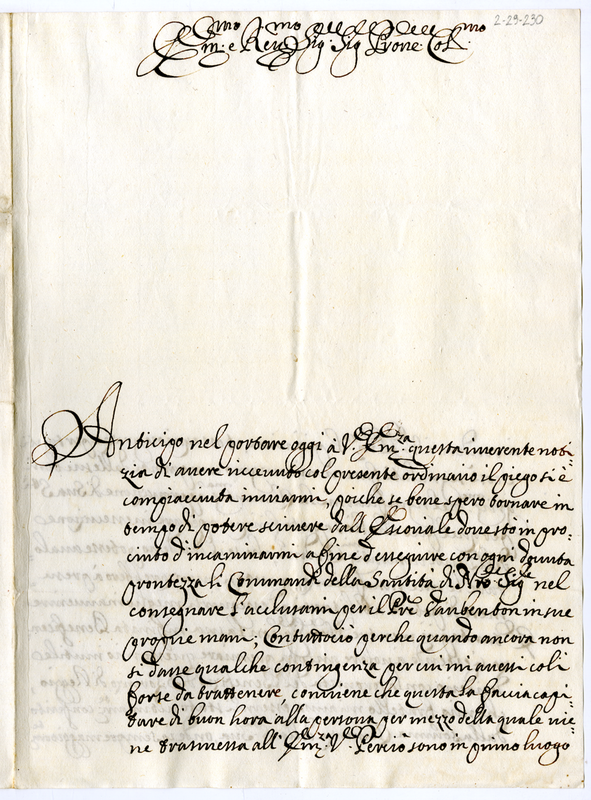 2-29-230
Em.mo e Rev.mo Sig.r Sig.r Prone Col.mo
Anticipo nel portare oggi à V.ra Em.za questa riverente noti=
zia di avere ricevuto col presente ordinario il piego si è
compiacciuta inviarmi, poiche se bene spero tornare in
tempo di potere scrivere dall' dove stò in pro=
cinto d'incaminarmi affine d'eseguire con ogni dovuta
prontezza li Commandi della Santità di N.ro Sig.re nel
consegnare l'acclusami per il P.re Daubenton in sue
proprie mani; Contuttocio perche quando ancora non
si dasse qualche contingenza per cui mi avessi colà
forse da trattenere, conviene che questa la faccia capi=
tare di buon hora alla persona per mezzo della quale vie=
ne trasmessa all' Em.za V.ra Perciò sono in primo luogo